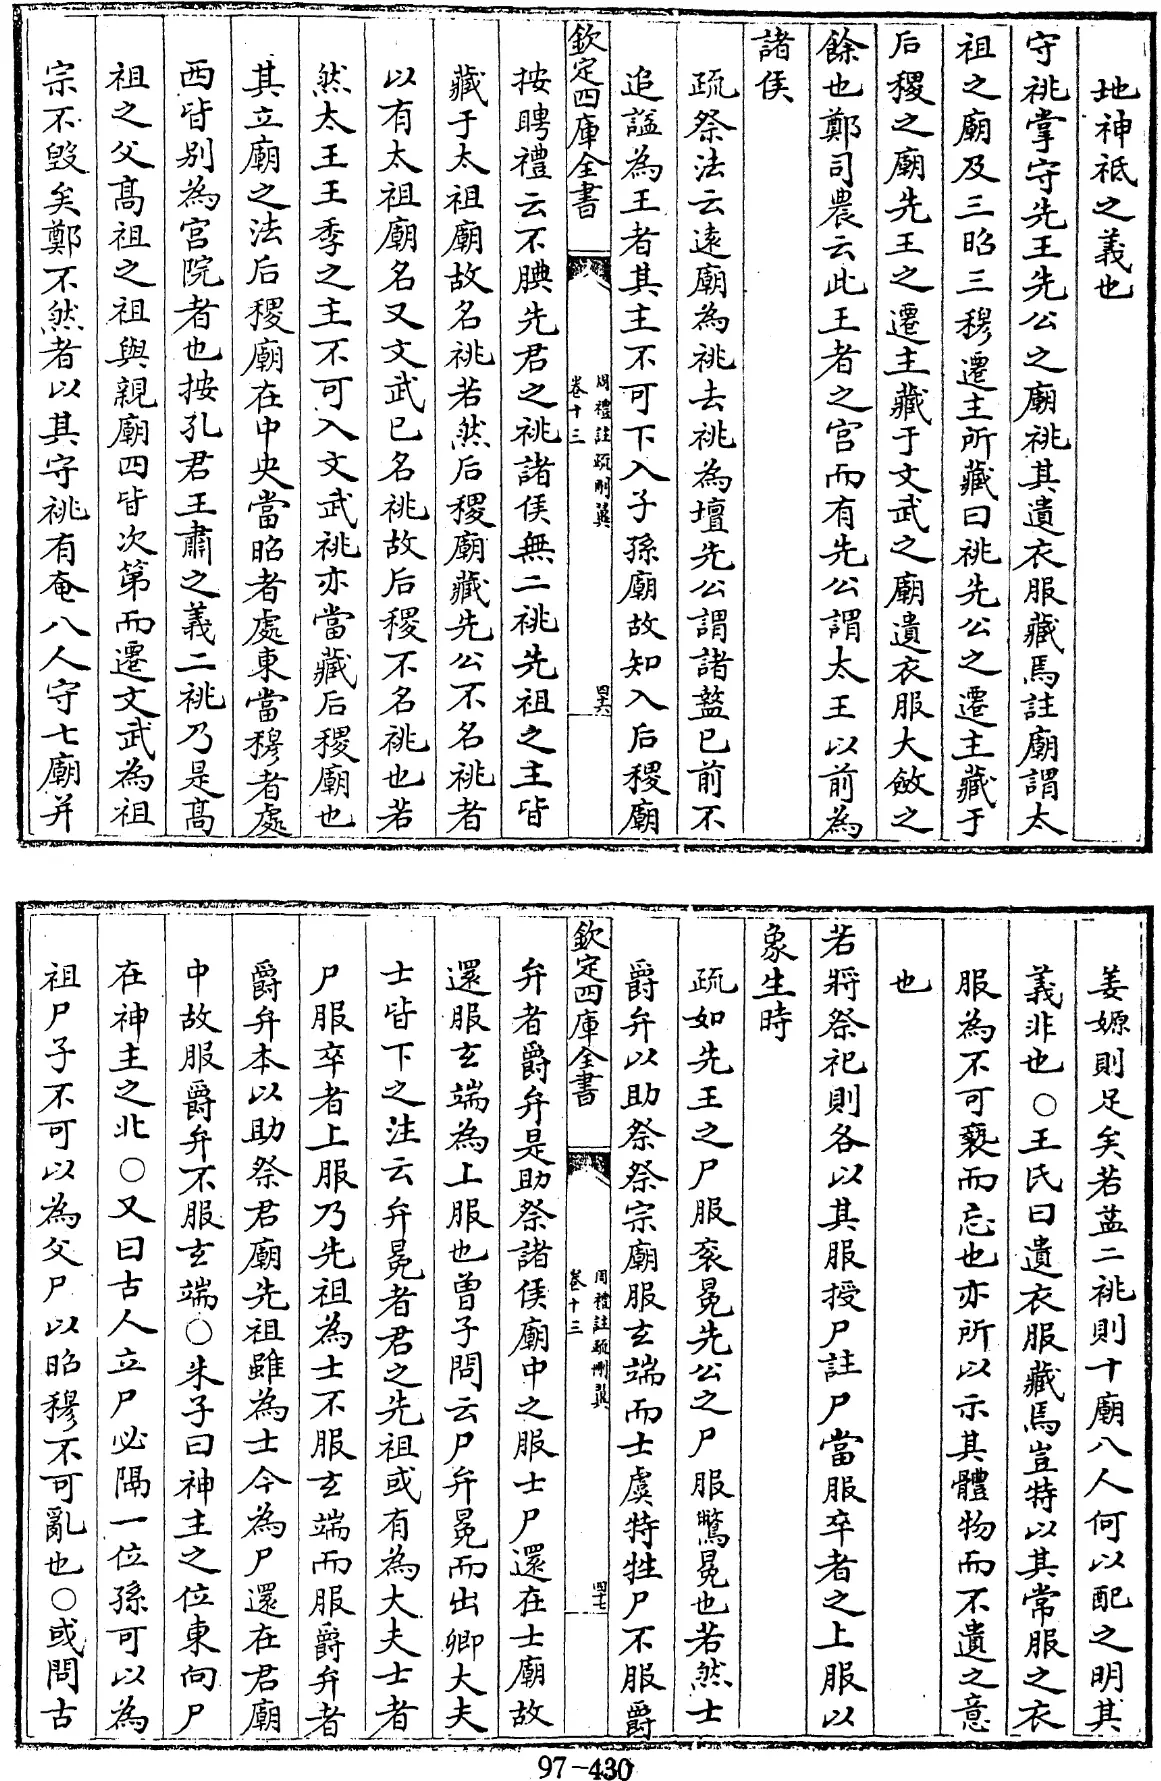 地神祗之義也
守祧掌守先王先公之廟祧其遺衣服藏焉註廟謂太
祖之廟及三昭三穆遷主所藏曰祧先公之遷主藏于
后稷之廟先王之遷主藏于文武之廟遺衣服大斂之
餘也鄭司農云此王者之宫而有先公謂太王以前為
諸侯
疏祭法云逺廟為祧去祧為壇先公謂諸盩已前不
追諡為王者其主不可下入子孫廟故知入后稷廟
欽定四庫全書
周禮註疏刪翼
卷十三
四六
按聘禮云不腆先君之祧諸侯無二祧先祖之主皆
藏于太祖廟故名祧若然后稷廟藏先公不名祧者
以有太祖廟名又文武已名祧故后稷不名祧也若
然太王王季之主不可入文武祧亦當藏后稷廟也
其立廟之法后稷廟在中央當昭者處東當穆者處
西皆别為宫院者也按孔君王肅之義二祧乃是髙
祖之父髙祖之祖與親廟四皆次第而遷文武為祖
宗不毁矣鄭不然者以其守祧有奄八人守七廟并
姜嫄則足矣若益二祧則十廟八人何以配之明其
義非也○王氏曰遺衣服藏焉豈特以其常服之衣
服為不可褻而忘也亦所以示其體物而不遺之意
也
若將祭祀則各以其服授尸註尸當服卒者之上服以
象生時
疏如先王之尸服衮冕先公之尸服鷩冕也若然士
爵弁以助祭祭宗廟服𤣥端而士虞特牲尸不服爵
欽定四庫全書
周禮註疏刪翼
卷十三
四七
弁者爵弁是助祭諸侯廟中之服士尸還在士廟故
還服𤣥端為上服也曽子問云尸弁冕而出卿大夫
士皆下之注云弁冕者君之先祖或有為大夫士者
尸服卒者上服乃先祖為士不服𤣥端而服爵弁者
爵弁本以助祭君廟先祖雖為士今為尸還在君廟
中故服爵弁不服𤣥端○朱子曰神主之位東向尸
在神主之北○又曰古人立尸必隔一位孫可以為
祖尸子不可以為父尸以昭穆不可亂也○或問古
97-430